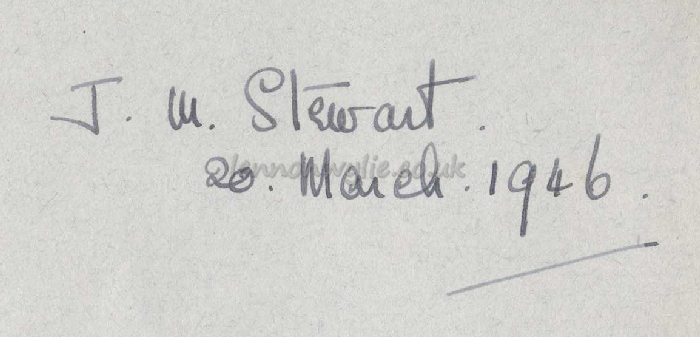 J. M. Stewart.
20. March. 1946.
lennonwylie.co.uk